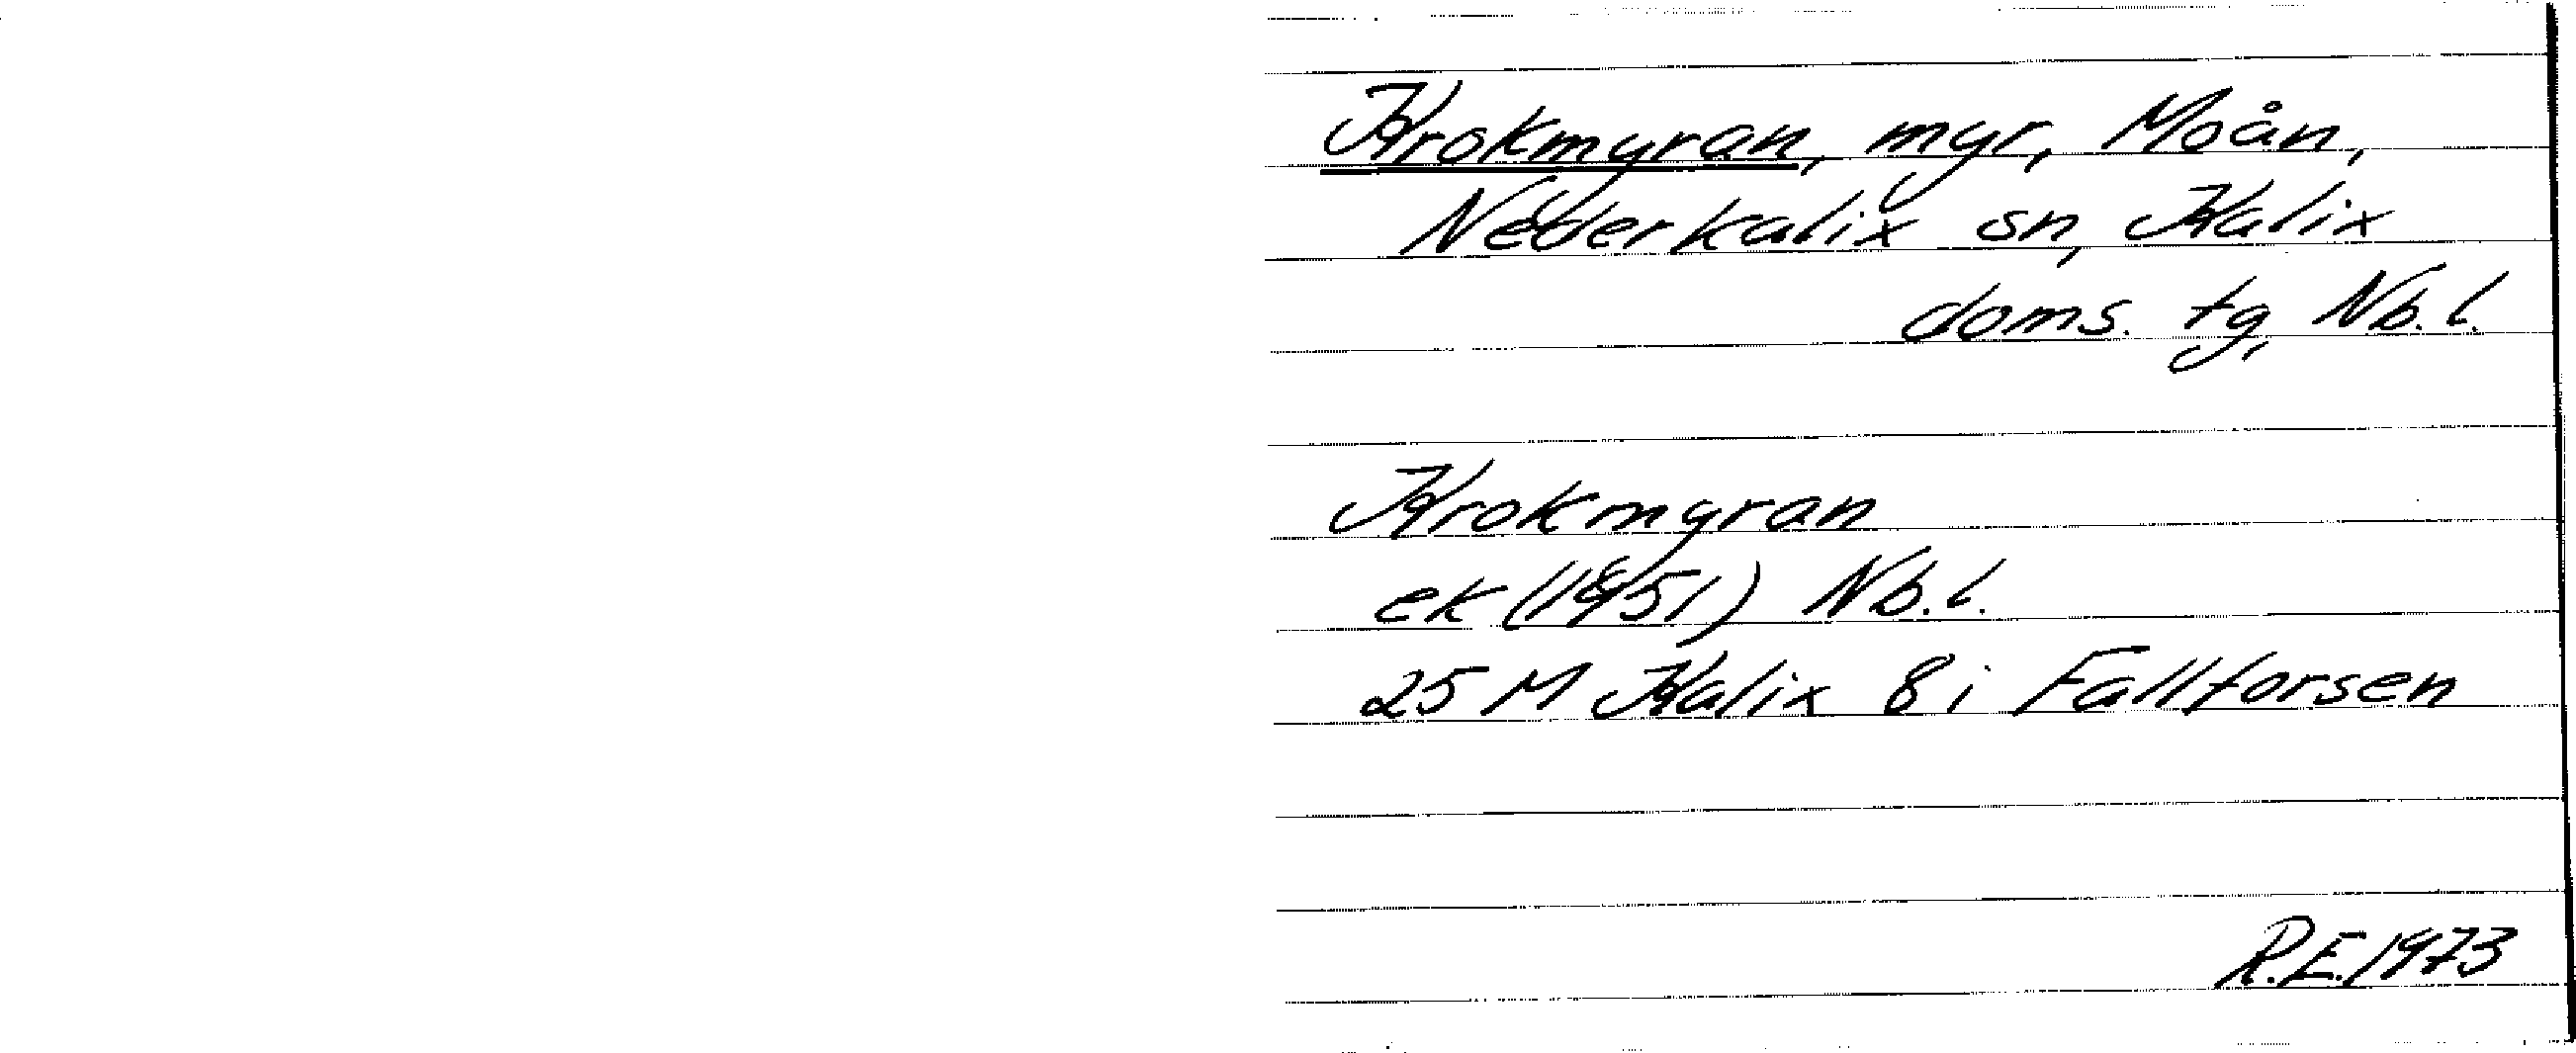 Krokmyran, myr, Moån,
Nederkalix sn, Kalix
doms. tg, Nb.l.
Krokmyran
ek (1951) Nb.l.
25 M Kalix 8 i Fallforsen
R.E. 1973